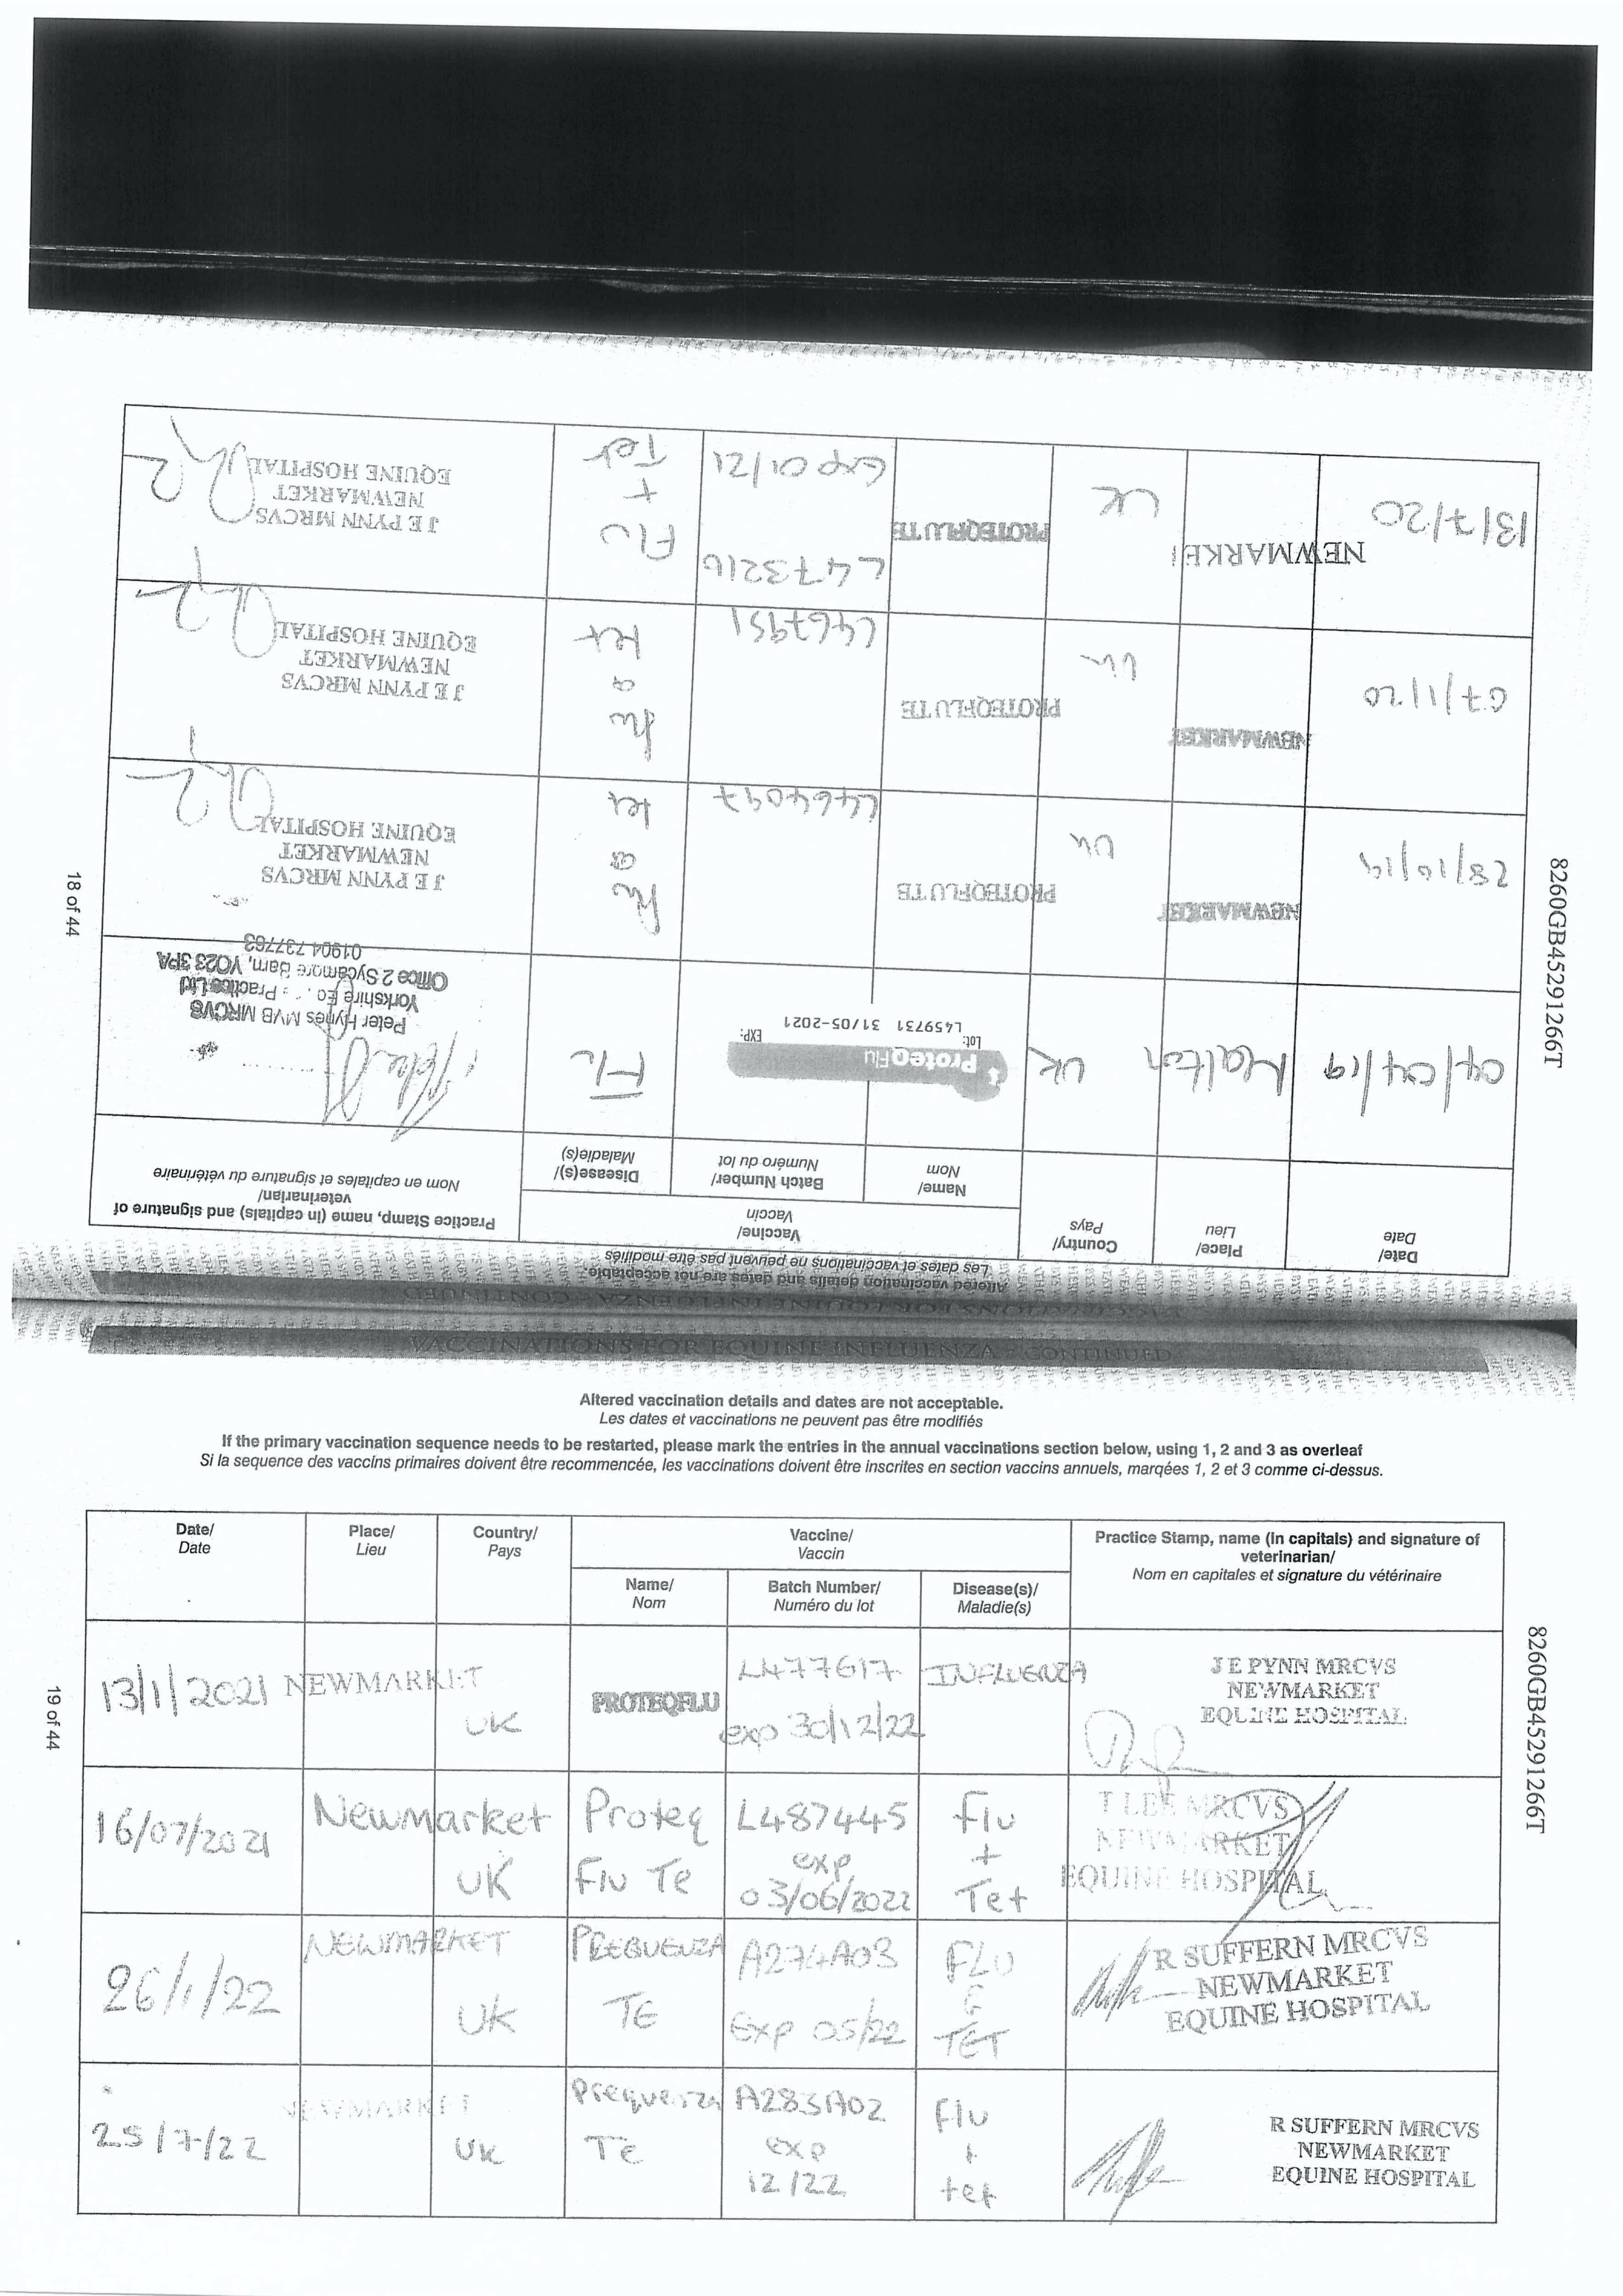 VACCINATIONS FOR EQUINE INFLUENZA - CONTINUED
Altered vaccination details and dates are not acceptable.
Les dates et vaccinations ne peuvent pas être modifiés
Date/
Date
Place/
Lieu
Country/
Pays
Vaccine/
Vaccin
Name/
Nom
Batch Number/
Numéro du lot
Disease(s)/
Maladie(s)
Practice Stamp, name (in capitals) and signature of
veterinarian/
Nom en capitales et signature du vétérinaire
04/04/19
Malton
UK
ProteqFlu
Lot: EXP:
L459731 31/05-2021
Flu
Peter Hynes MVB MRCVS
Yorkshire Practice Ltd
Office 2 Sycamore Barn, YO23 3PA
01904 737763
28/10/19
NEWMARKET
UK
PROTEQFLU TE
L464097
flu
&
tet
J E PYNN MRCVS
NEWMARKET
EQUINE HOSPITAL
07/1/20
NEWMARKET
UK
PROTEQFLU TE
L467951
flu
&
tet
J E PYNN MRCVS
NEWMARKET
EQUINE HOSPITAL
13/7/20
NEWMARKET
UK
PROTEQFLU TE
L473216
Exp 01/21
Flu
+
Tet
J E PYNN MRCVS
NEWMARKET
EQUINE HOSPITAL
18 of 44
8260GB45291266T
VACCINATIONS FOR EQUINE INFLUENZA - CONTINUED
Altered vaccination details and dates are not acceptable.
Les dates et vaccinations ne peuvent pas être modifiés
If the primary vaccination sequence needs to be restarted, please mark the entries in the annual vaccinations section below, using 1, 2 and 3 as overleaf
Si la sequence des vaccins primaires doivent être recommencée, les vaccinations doivent être inscrites en section vaccins annuels, marqées 1, 2 et 3 comme ci-dessus.
Date/
Date
Place/
Lieu
Country/
Pays
Vaccine/
Vaccin
Name/
Nom
Batch Number/
Numéro du lot
Disease(s)/
Maladie(s)
Practice Stamp, name (in capitals) and signature of
veterinarian/
Nom en capitales et signature du vétérinaire
13/1/2021
NEWMARKET
UK
PROTEQFLU
L477617
exp 30/12/22
INFLUENZA
J E PYNN MRCVS
NEWMARKET
EQUINE HOSPITAL
16/07/2021
Newmarket
UK
Proteq
Flu Te
L487445
exp
03/06/2022
Flu
+
Tet
T LEE MRCVS
NEWMARKET
EQUINE HOSPITAL
26/1/22
NEWMARKET
UK
PREQUENZA
TE
A274A03
Exp 05/22
FLU
&
TET
R SUFFERN MRCVS
NEWMARKET
EQUINE HOSPITAL
25/7/22
NEWMARKET
UK
Prequenza
Te
A283A02
exp
12/22
Flu
+
tet
R SUFFERN MRCVS
NEWMARKET
EQUINE HOSPITAL
19 of 44
8260GB45291266T